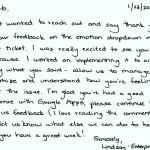 1/12/20
wanted to reach out and say thank
our feedback on the emotion dropdown i
ticket. I was really excited to see you
cause I worked on implementing it to
y what you said - allow us to manag
and understand how you're feelin
the issue. I'm glad you've had a good
ience with Google Apps, please continue
us feedback (I love reading the comment
et us know what else we can do to he
you have a great week!
Sincerely,
Lindsay -